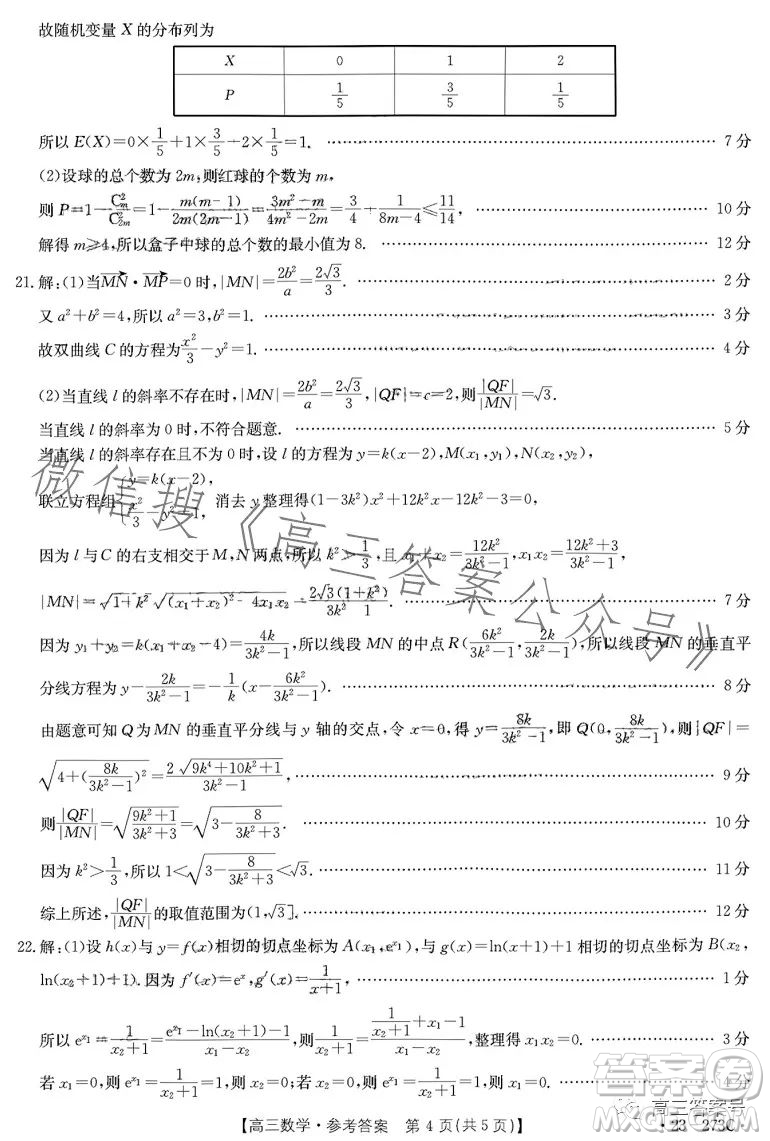 故随机变量 X 的分布列为
X 0 1 2
P 1/5 3/5 1/5
所以 E(X)=0×1/5+1×3/5+2×1/5=1. ………… 7 分
(2)设球的总个数为 2m,则红球的个数为 m,
则 P=1-C²ₘ/C²₂ₘ=1-m(m-1)/2m(2m-1)=(3m²-m)/(4m²-2m)=3/4+1/(8m-4)≤11/14, ………… 10 分
解得 m≥4,所以盒子中球的总个数的最小值为 8. ………… 12 分
21.解:(1)当MN·MP=0 时,|MN|=2b²/a=2√3/3. ………… 2 分
又 a²+b²=4,所以 a²=3,b²=1.
故双曲线 C 的方程为x²/3-y²=1. ………… 4 分
(2)当直线 l 的斜率不存在时,|MN|=2b²/a=2√3/3,|QF|=c=2,则|QF|/|MN|=√3.
当直线 l 的斜率为 0 时,不符合题意. ………… 5 分
当直线 l 的斜率存在且不为 0 时,设 l 的方程为 y=k(x-2),M(x₁,y₁),N(x₂,y₂),
联立方程组{y=k(x-2), x²/3-y²=1, 消去 y 整理得(1-3k²)x²+12k²x-12k²-3=0,
因为 l 与C 的右支相交于 M,N 两点,所以 k²>1/3,且 x₁+x₂=12k²/(3k²-1),x₁x₂=(12k²+3)/(3k²-1),
|MN|=√(1+k²)√((x₁+x₂)²-4x₁x₂)=2√3(1+k²)/(3k²-1). ………… 7 分
因为 y₁+y₂=k(x₁+x₂-4)=4k/(3k²-1),所以线段 MN 的中点 R(6k²/(3k²-1),2k/(3k²-1)),所以线段 MN 的垂直平
分线方程为 y-2k/(3k²-1)=-1/k(x-6k²/(3k²-1)). ………… 8 分
由题意可知 Q 为 MN 的垂直平分线与 y 轴的交点,令 x=0,得 y=8k/(3k²-1),即 Q(0,8k/(3k²-1)),则|QF|=
√(4+(8k/(3k²-1))²)=2√(9k⁴+10k²+1)/(3k²-1). ………… 9 分
则|QF|/|MN|=√((9k²+1)/(3k²+3))=√(3-8/(3k²+3)). ………… 10 分
因为 k²>1/3,所以 1<√(3-8/(3k²+3))<√3. ………… 11 分
综上所述,|QF|/|MN|的取值范围为(1,√3]. ………… 12 分
22.解:(1)设 h(x)与 y=f(x)相切的切点坐标为 A(x₁,eˣ¹),与 g(x)=ln(x+1)+1 相切的切点坐标为 B(x₂,
ln(x₂+1)+1). 因为 f′(x)=eˣ,g′(x)=1/(x+1), ………… 1 分
所以 eˣ¹=1/(x₂+1)=(eˣ¹-ln(x₂+1)-1)/(x₁-x₂),则1/(x₂+1)=(1/(x₂+1)+x₁-1)/(x₁-x₂),整理得 x₁x₂=0. ………… 3 分
若 x₁=0,则 eˣ¹=1/(x₂+1)=1,则 x₂=0;若 x₂=0,则 eˣ¹=1/(x₂+1)=1,则 x₁=0. ………… 4 分
【高三数学·参考答案 第 4 页(共 5 页)】
·23-273C·
微信搜《高三答案公众号》
高三答案号
答案圈